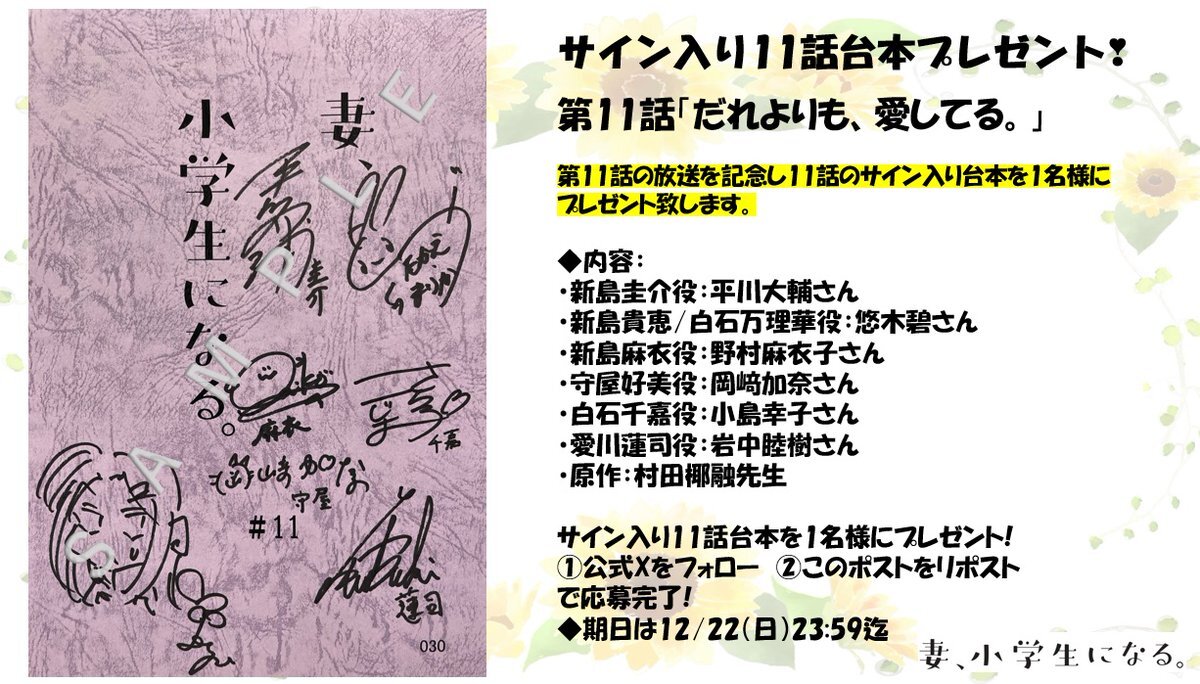 サイン入り11話台本プレゼント❣
第11話「だれよりも、愛してる。」
第11話の放送を記念し11話のサイン入り台本を1名様に
プレゼント致します。
◆内容：
・新島圭介役：平川大輔さん
・新島貴恵/白石万理華役：悠木碧さん
・新島麻衣役：野村麻衣子さん
・守屋好美役：岡﨑加奈さん
・白石千嘉役：小島幸子さん
・愛川蓮司役：岩中睦樹さん
・原作：村田椰融先生
サイン入り11話台本を1名様にプレゼント！
①公式Xをフォロー　②このポストをリポスト
で応募完了！
◆期日は12/22（日）23:59迄
妻、小学生になる。
妻、
小学生になる。
SAMPLE
圭介
麻衣
千嘉
守屋
#11
蓮司
030